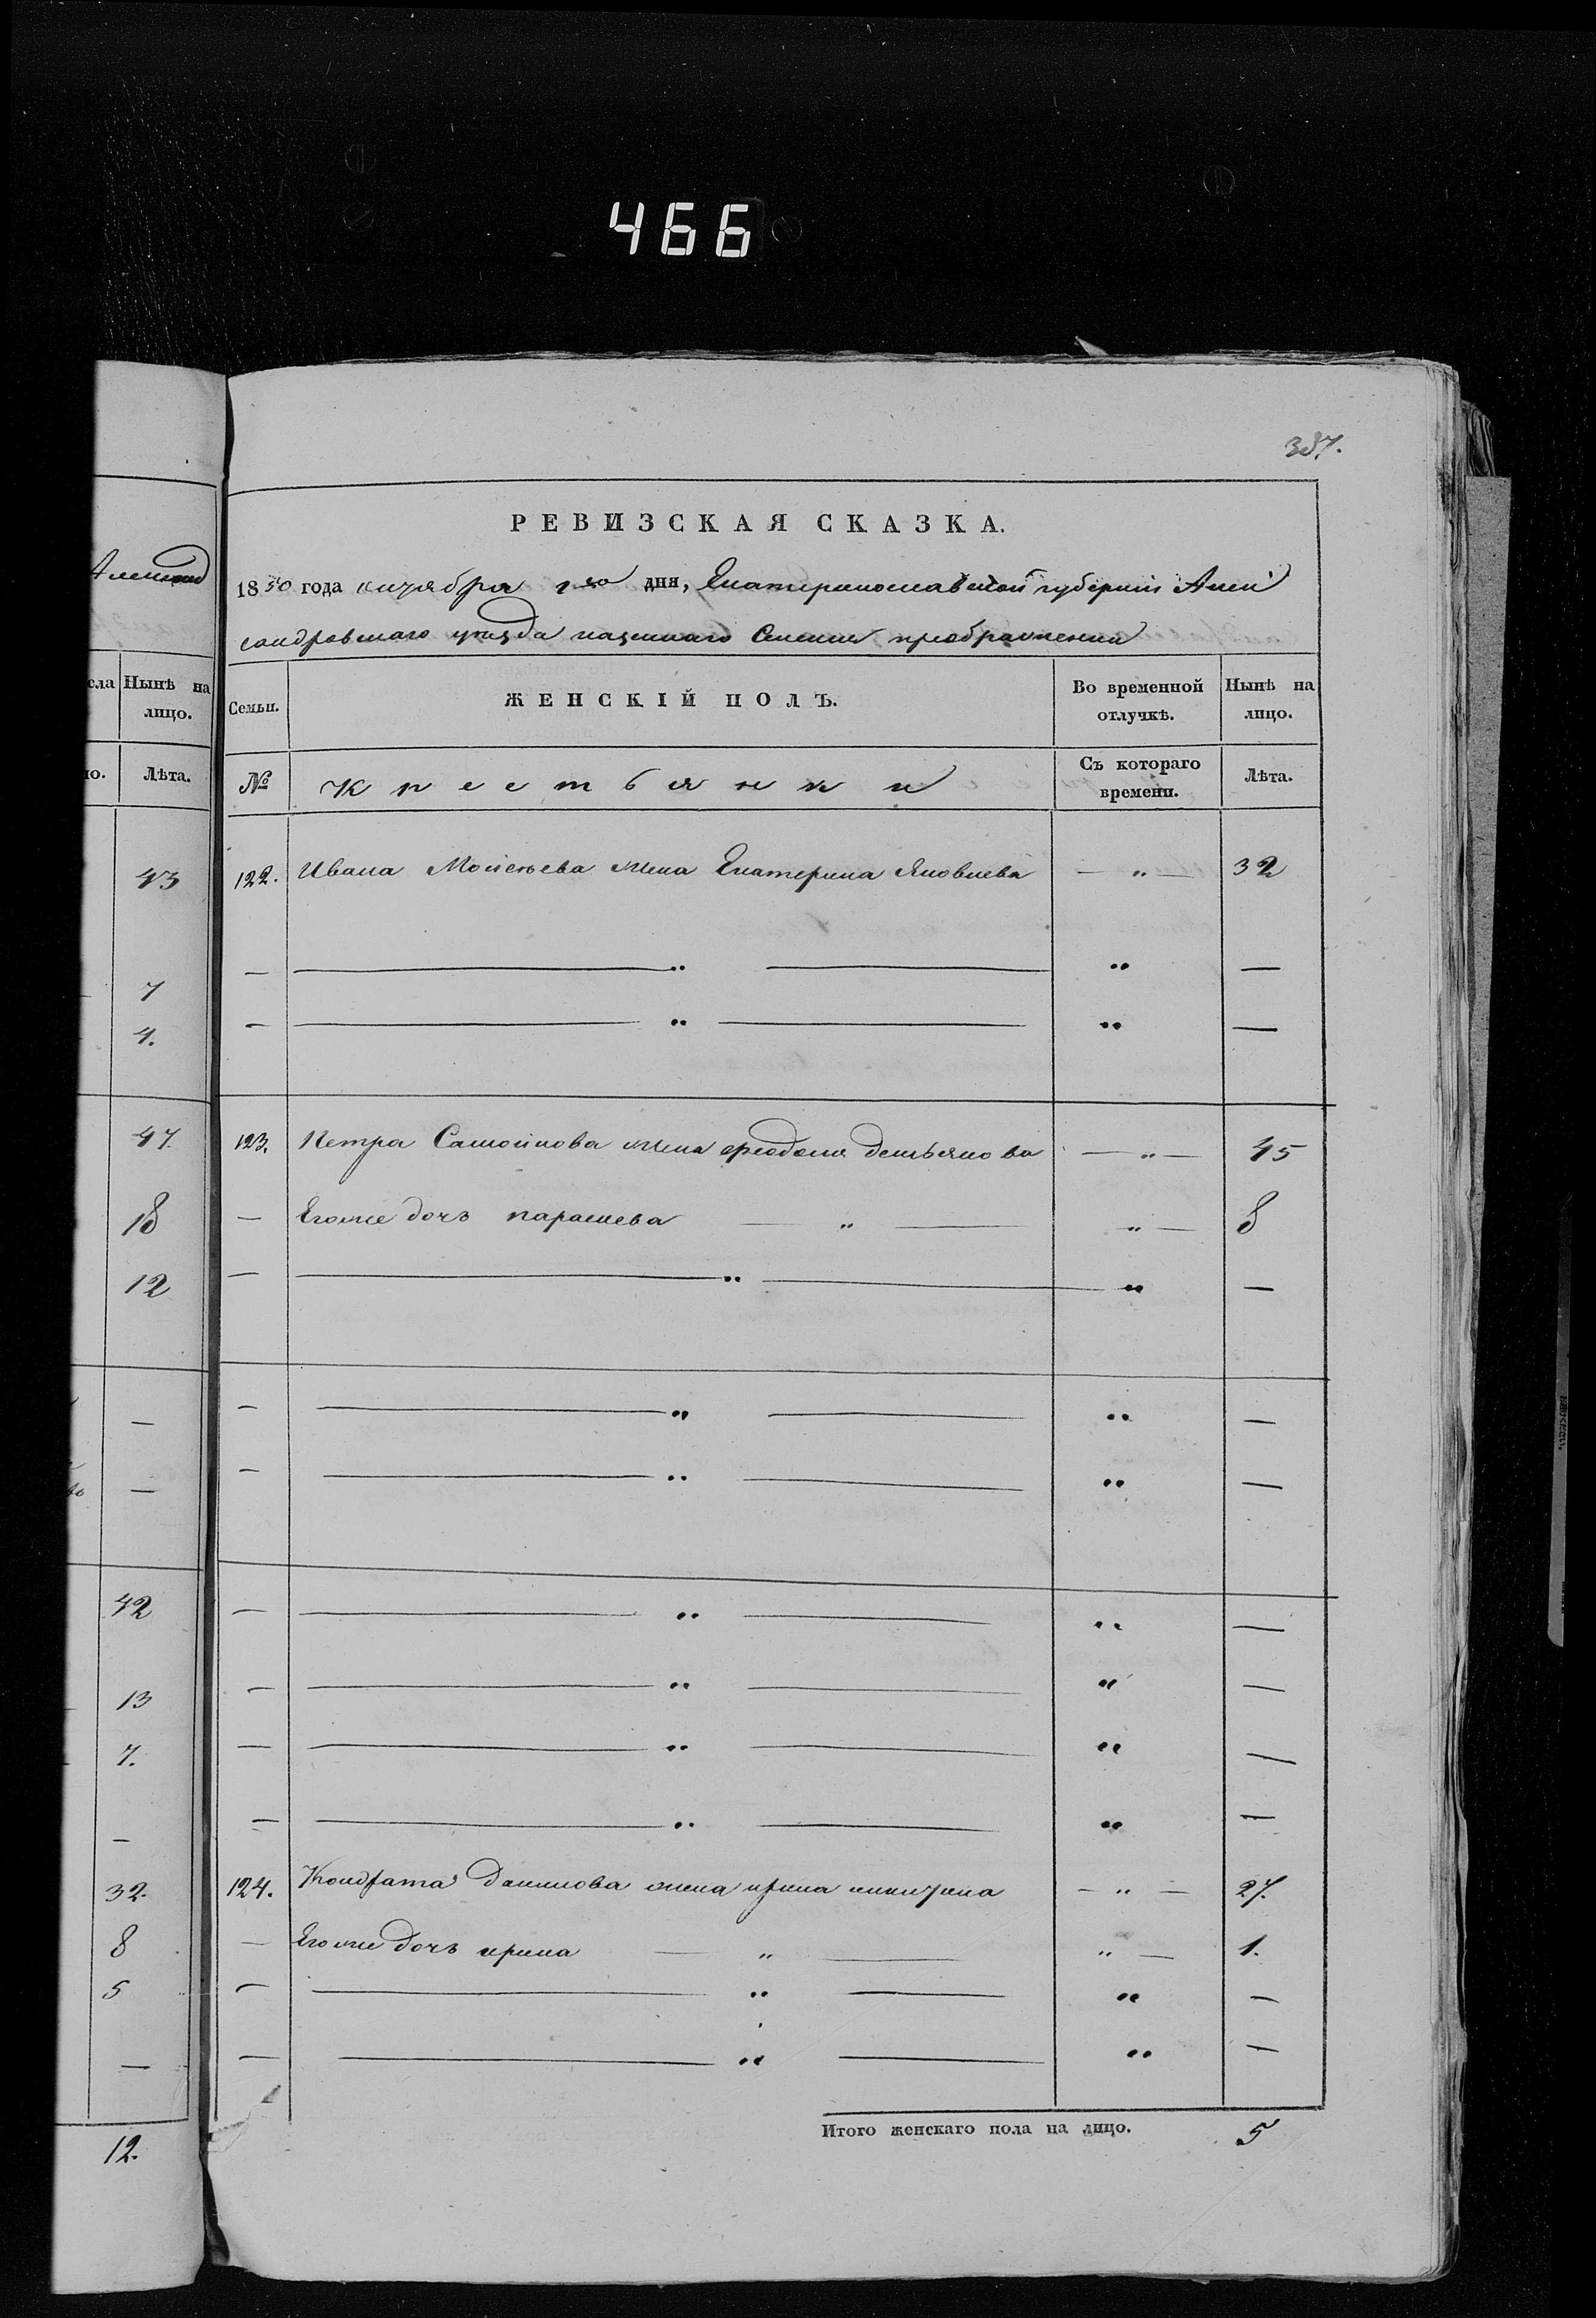 466
387.
РЕВИЗСКАЯ СКАЗКА.
1850 года октября 1го дня, Екатеринославской губернии Алек
сандровскаго уезда казеннаго Селения преображенки
Александ
сла Нынѣ на лицо.
Семьи. ЖЕНСКІЙ ПОЛЪ. Во временной отлучкѣ. Нынѣ на лицо.
ло. Лѣта.
№ Крестьянки Съ котораго времени. Лѣта.
43 122. Ивана Моисеева жена Екатерина Яковлева — „ — 32
— — „ — „ —
7
— — „ — „ —
4.
47. 123. Петра Самойлова жена Демьянова — „ — 45
18 — Егоже дочь парасцева — „ — „ — 8
12 — — „ — „ —
— — — „ — „ —
— — — „ — „ —
42 — — „ — „ —
13 — — „ — „ —
7. — — „ — „ —
— — — „ — „ —
32. 124. Кондрата Данилова жена ирина никитина — „ — 27.
8 — Егоже дочь ирина — „ — „ — 1.
5 — — „ — „ —
— — — „ — „ —
Итого женскаго пола на лицо. 5
12.